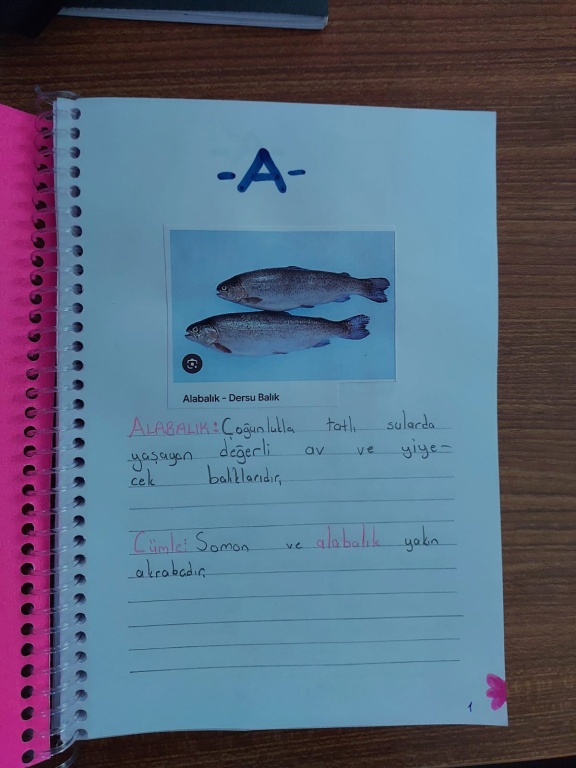 -A-
Alabalık - Dersu Balık
ALABALIK: Çoğunlukla tatlı sularda
yaşayan değerli av ve yiye-
cek balıklarıdır.
Cümle: Somon ve alabalık yakın
akrabadır.
1